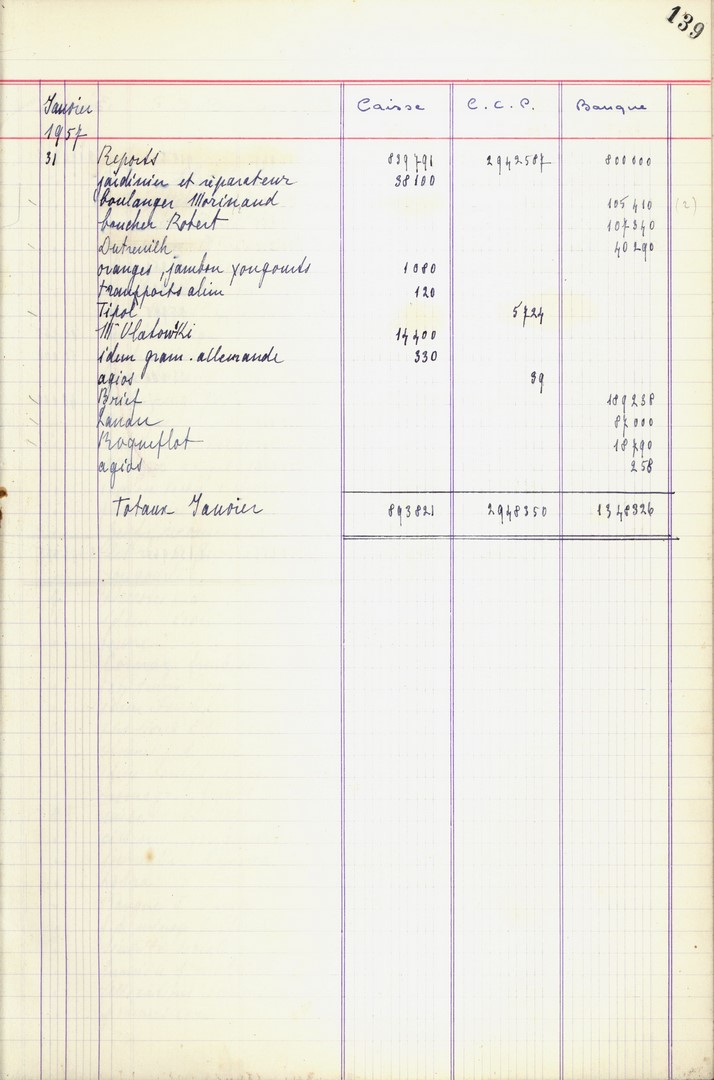 139
Janvier Caisse C.C.P. Banque
1957
31 Reports 839791 2942587 800000
jardinier et réparateur 38100
boulanger Morinaud 105410 (2)
boucher Robert 107340
Dutreuilh 40290
oranges, jambon yougourts 1080
transports alim 120
Tipol 5724
Mr Vlatowki 14400
idem gram. allemande 330
agios 39
Brief 189238
Landu 87000
Roqueflot 18790
agios 258
Totaux Janvier 893821 2948350 1348326